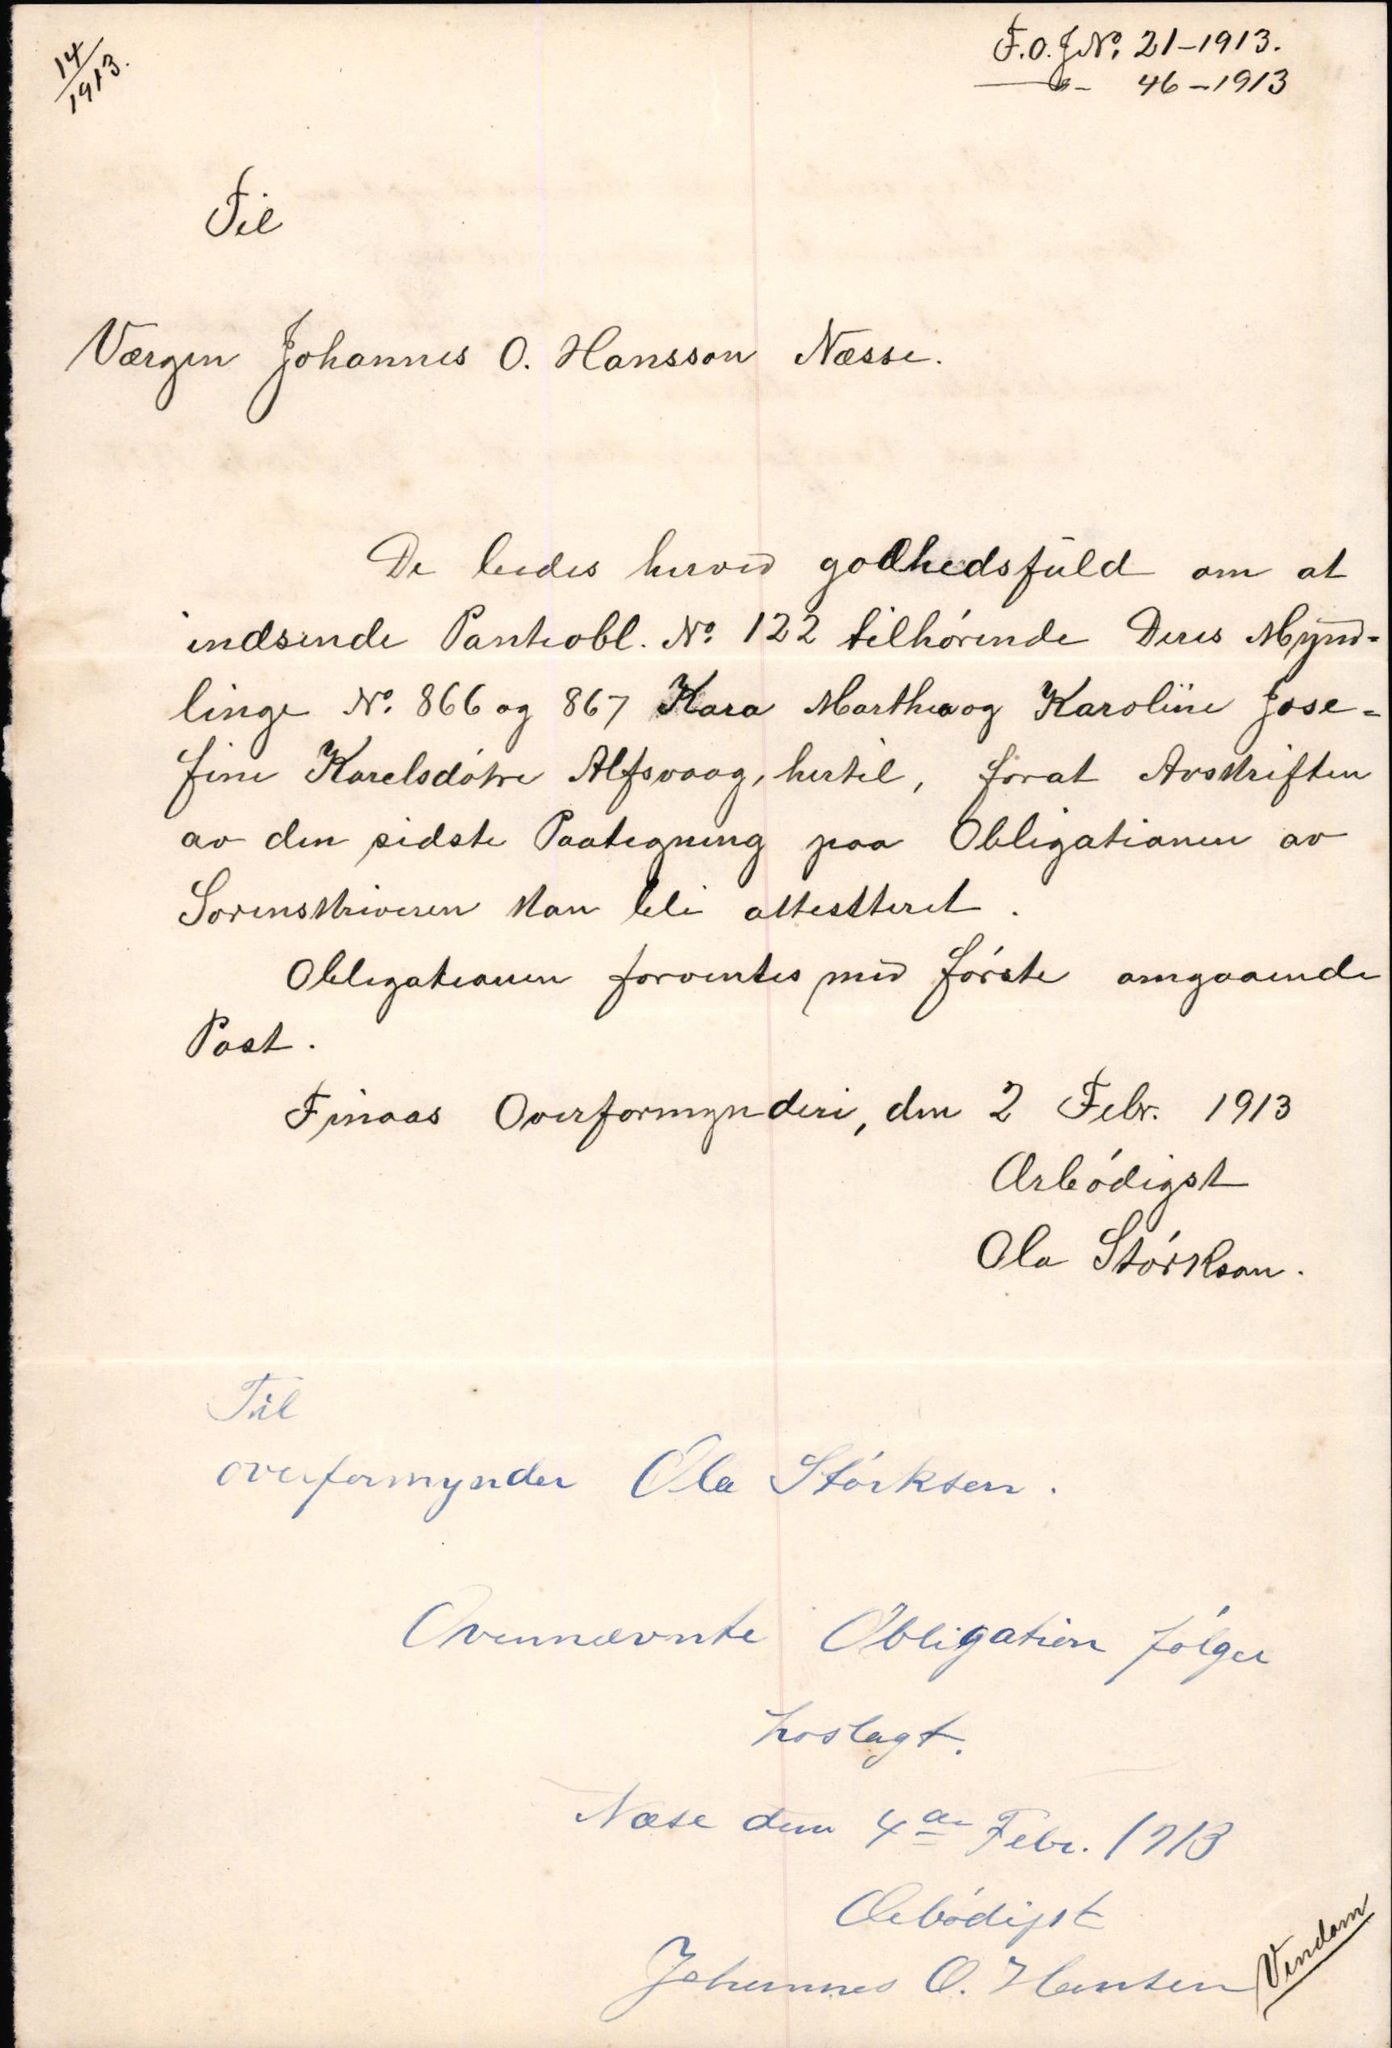 14/1913.
F.O.J.No. 21-1913.
—„— 46-1913
Til
Værgen Johannes O. Hansson Næsse.
De bedes herved godhedsfuld om at
indsende Panteobl. No. 122 tilhørende Deres Mynd-
linge No. 866 og 867 Kara Marthea og Karoline Jose-
fine Karelsdøtre Alfsvaag, hertil, forat Avskriften
av den sidste Paategning paa Obligationen av
Sorenskriveren kan bli attesteret.
Obligationen forventes med første omgaaende
Post.
Finaas Overformynderi, den 2 Febr. 1913
Ærbødigst
Ola Størkson.
Til
overformynder Ola Størksen.
Ovennævnte Obligation følger
hoslagt.
Næse den 4de Febr. 1913
Ærbødigst
Johannes O. Hansen
Vendom